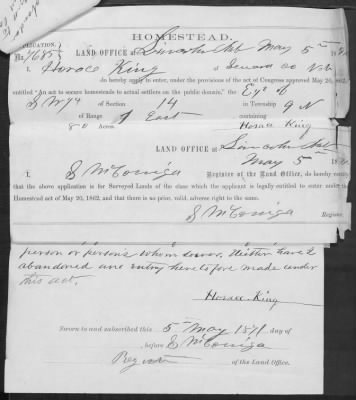 HOMESTEAD.
LAND OFFICE at Lincoln Neb May 5th 1871
I, Horace King of Seward Co Neb
do hereby apply to enter, under the provisions of the act of Congress approved May 20, 1862,
entitled "An act to secure homesteads to actual settlers on the public domain," the E½ of
S W ¼ of Section 14 in Township 9 N
of Range 1 East containing
80 Acres. Horace King
LAND OFFICE at Lincoln Neb
May 5 1871
I, S McConiga Register of the Land Office, do hereby
that the above application is for Surveyed Lands of the class which the applicant is legally entitled to enter under
Homestead act of May 20, 1862, and that there is no prior, valid, adverse right to the same.
S McConiga
Register.
person or persons whomsoever. Neither have I
abandoned an entry heretofore made under
this act.
Horace King
Sworn to and subscribed this 5 May 1871, day of
before S McConiga
Register of the Land Office.